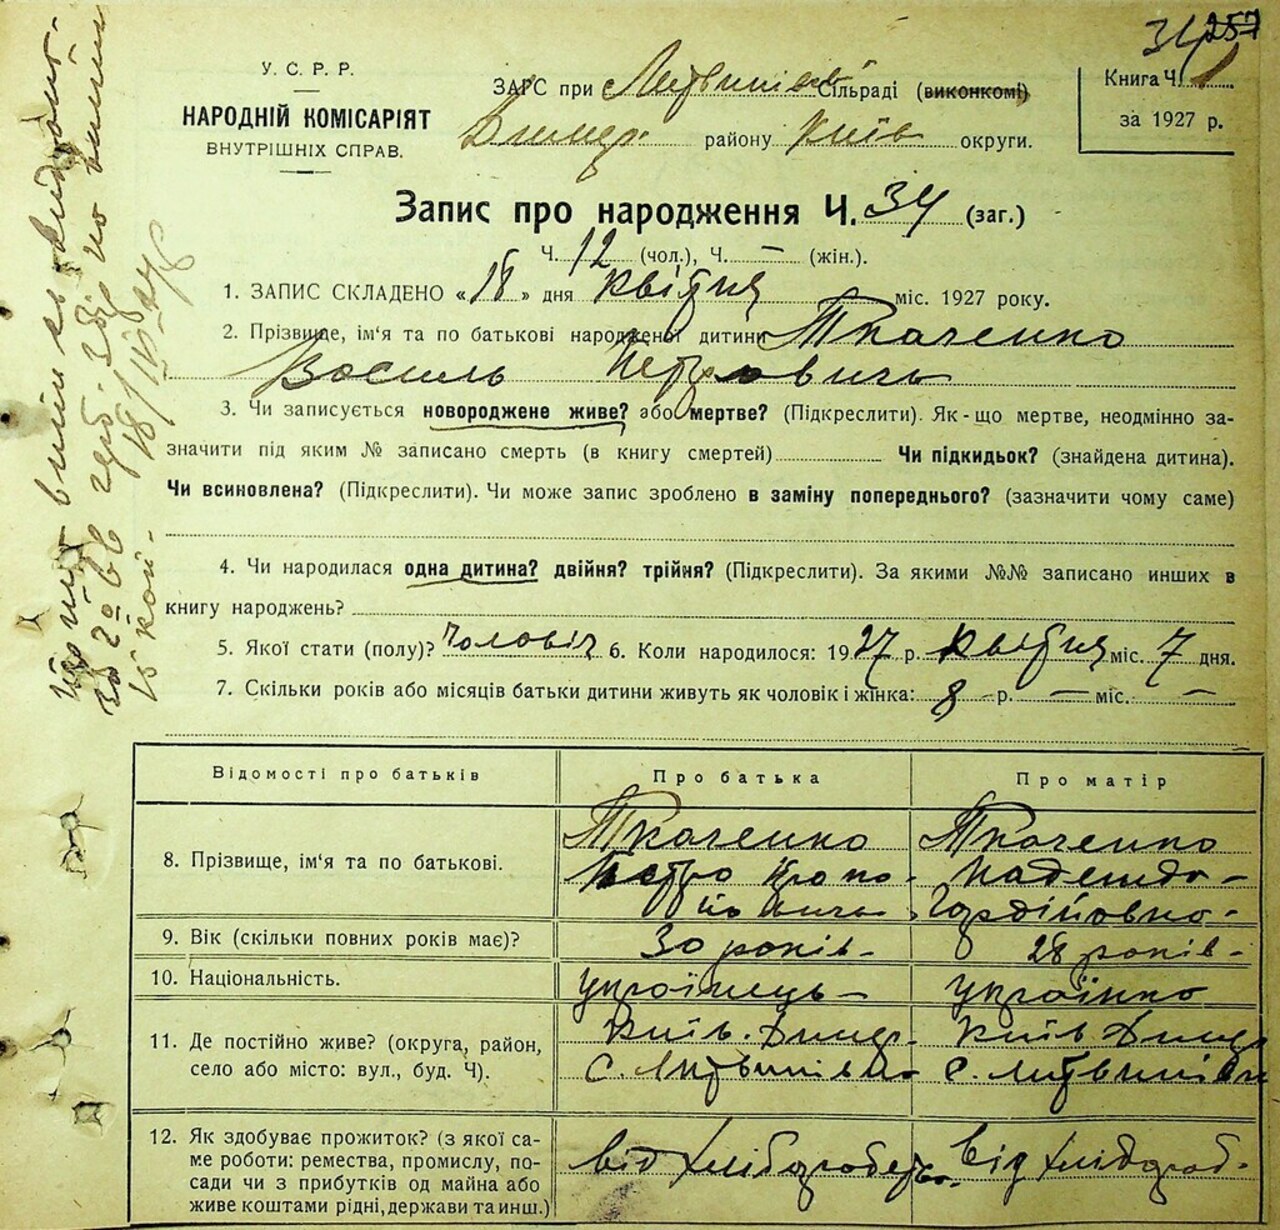 34 257
У. С. Р. Р.
НАРОДНІЙ КОМІСАРІЯТ
ВНУТРІШНІХ СПРАВ.
ЗАГС при Литвинів Сільраді (виконкомі)
Димер. району Київ округи.
Книга Ч. 1
за 1927 р.
Запис про народження Ч. 34 (заг.)
Ч. 12 (чол.), Ч. — (жін.).
1. ЗАПИС СКЛАДЕНО «18» дня квітня міс. 1927 року.
2. Прізвище, ім'я та по батькові народженої дитини Ткаченко
Василь Петрович
3. Чи записується новороджене живе? або мертве? (Підкреслити). Як-що мертве, неодмінно за-
значити під яким № записано смерть (в книгу смертей) Чи підкидьок? (знайдена дитина).
Чи всиновлена? (Підкреслити). Чи може запис зроблено в заміну попереднього? (зазначити чому саме)
4. Чи народилася одна дитина? двійня? трійня? (Підкреслити). За якими №№ записано инших в
книгу народжень?
5. Якої стати (полу)? Чоловіч 6. Коли народилося: 1927 р. квітня міс. 7 дня.
7. Скільки років або місяців батьки дитини живуть як чоловік і жінка: 8 р. — міс. —
Відомості про батьків Про батька Про матір
8. Прізвище, ім'я та по батькові.
Ткаченко
Петро
Ткаченко
Надежда
Гордіївна
9. Вік (скільки повних років має)? 30 років 28 років
10. Національність. українець українка
11. Де постійно живе? (округа, район,
село або місто: вул., буд. Ч).
Київ. Димер.
с. Литвинівка
Київ Димер
с. Литвинівка
12. Як здобуває прожиток? (з якої са-
ме роботи: ремества, промислу, по-
сади чи з прибутків од майна або
живе коштами рідні, держави та инш.)
від хліборобства
від хлібороб.
18/IV-27
15 коп.